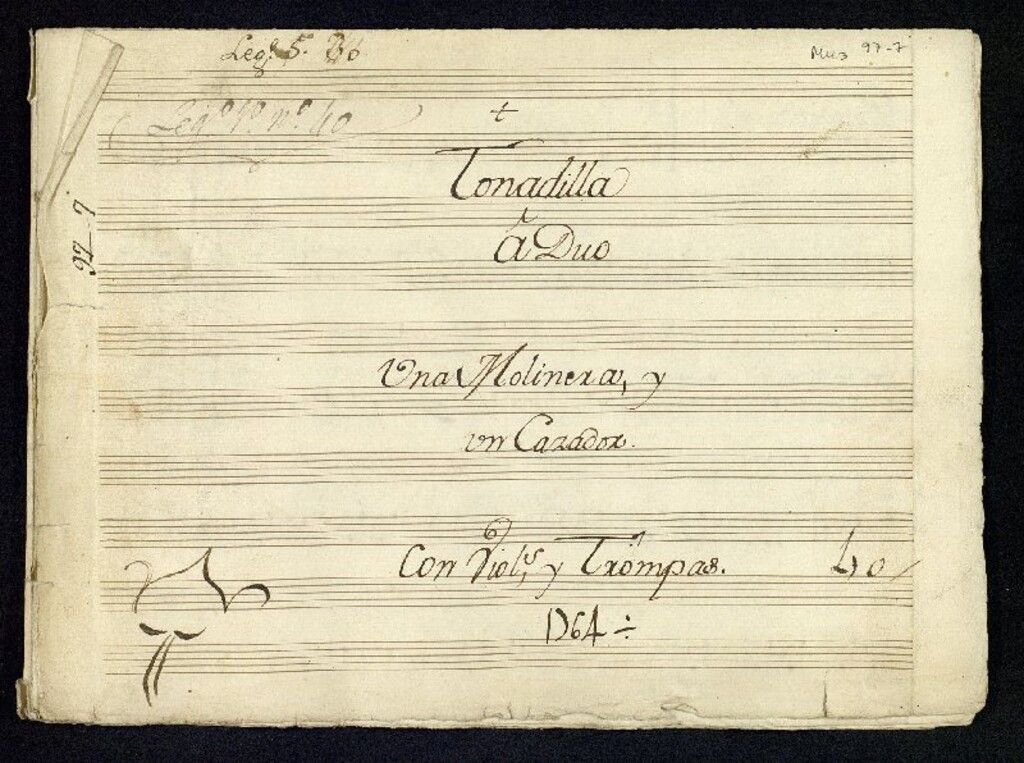 Leg.º 5.º
Mus 97-7
Leg.º 1º nº 40
+
Tonadilla
â Duo
97-7
Una Molinera, y
un Cazador.
Con Viol.s, y Trompas.
40
1764÷